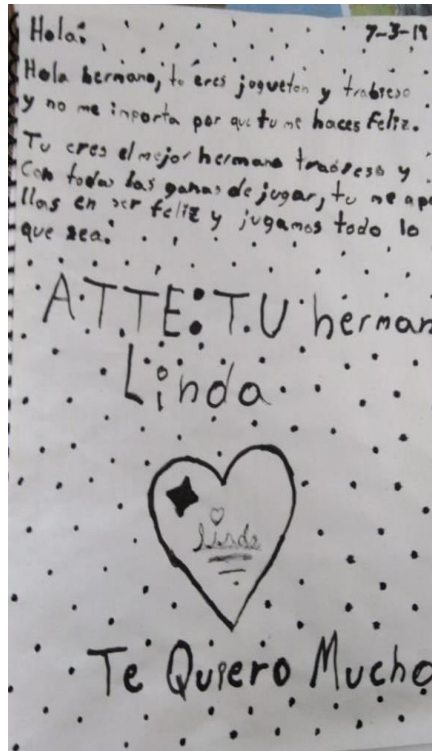 Hola: 7-3-19
Hola hermano, tu eres jugueton y trabieso
y no me importa por que tu me haces feliz.
Tu eres el mejor hermano trabieso y
Con todas las ganas de jugar, tu me apo
llas en ser feliz y jugamos todo lo
que sea.
A.T.T.E: T.U herman
Linda
linda
Te Quiero Mucho